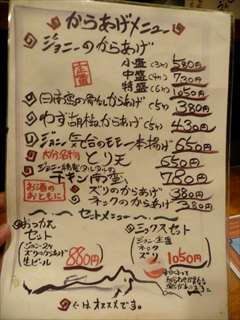 からあげメニュー
ジョニーのからあげ
小盛(3ヶ) 580円
中盛(4ヶ) 730円
特盛(6ヶ) 1050円
骨なしからあげ(5ヶ) 380円
わさ胡椒からあげ(5ヶ) 430円
ジョニー気合のモモ一本揚げ 650円
大分名物 とり天 650円
チキン南蛮 780円
お酒のおともに
ズリのからあげ 380円
ネックのからあげ 380円
セットメニュー
おつかれセット
ズリのからあげ
生ビール
880円
ミックスセット
ネック
ズリ
1050円
はオススメです。